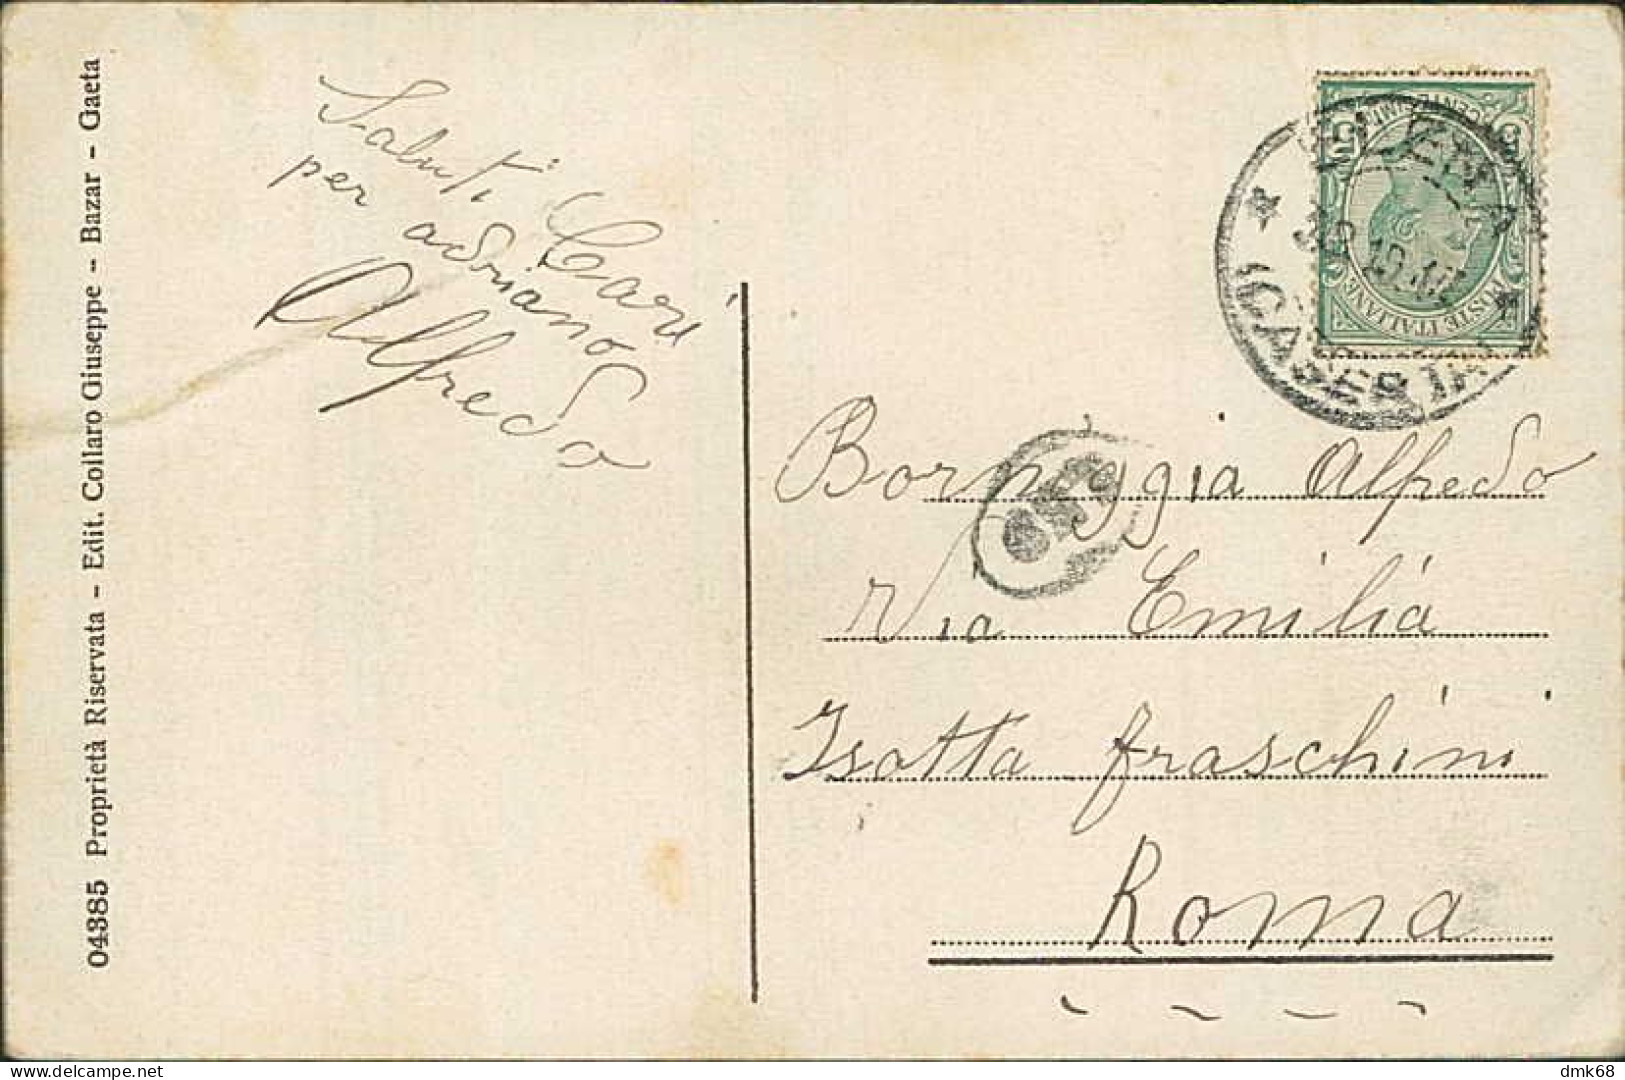 04385 Proprietà Riservata - Edit. Collaro Giuseppe - Bazar - Gaeta
Saluti Cari
per adriano
Alfredo
POSTE ITALIANE
(CASERTA)
Alfredo
Via Emilia
Isotta fraschini
Roma
delcampe.net
dmk68